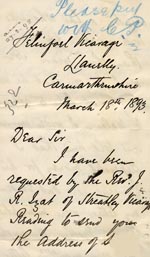 Please put
with C.P.
Felinfoel Vicarage
Llanelly
Carmarthenshire
March 18th 1893.
Dear Sir
I have been
requested by the Rev. J.
R. of Streatley Vicarage
Reading to send you
the address of